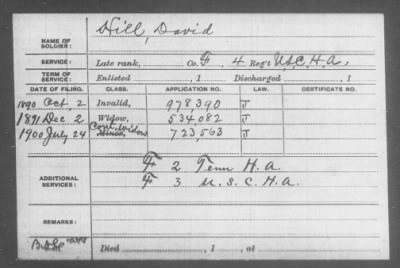 NAME OF SOLDIER: Hill, David
SERVICE: Late rank, Co. F, 4 Reg't U.S.C.H.A.
TERM OF SERVICE: Enlisted , 1 Discharged , 1
DATE OF FILING. CLASS. APPLICATION NO. LAW. CERTIFICATE NO.
1890 Oct. 2 Invalid, 978,390 J
1891 Dec 2 Widow, 534,082 J
1900 July 24 Cont. Widow Minor, 723,563 J
ADDITIONAL SERVICES: F 2 Tenn H.A.
F 3 U.S.C.H.A.
REMARKS:
Died , 1 , at